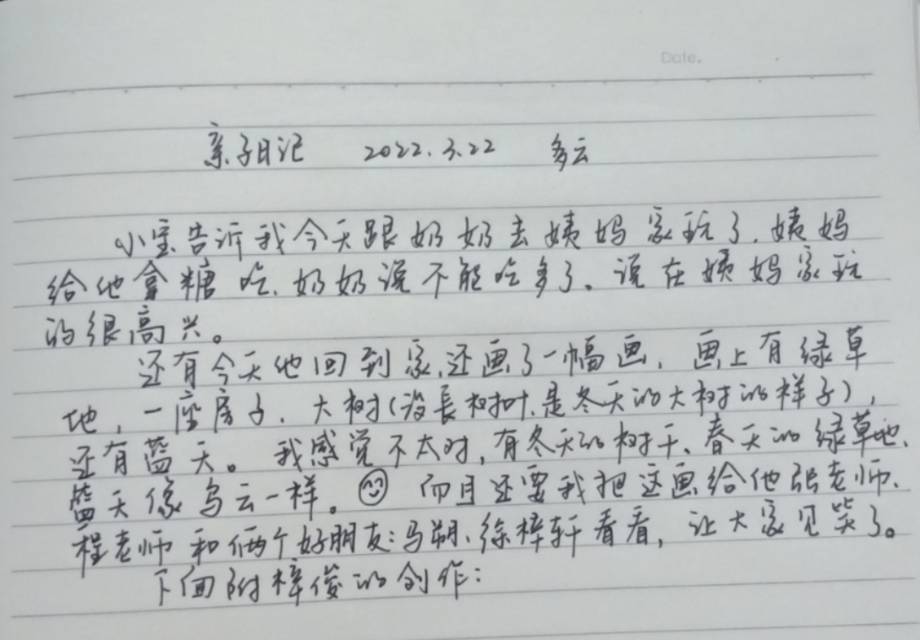 Date.
亲子日记 2022.3.22 多云
小宝告诉我今天跟奶奶去姨妈家玩了，姨妈
给他拿糖吃，奶奶说不能吃多了。说在姨妈家玩
的很高兴。
还有今天他回到家，还画了一幅画，画上有绿草
地，一座房子，大树（没長树叶，是冬天的大树的样子），
还有蓝天。我感觉不太对，有冬天的树干、春天的绿草地、
蓝天像乌云一样。😊而且还要我把这画给他张老师、
程老师和俩个好朋友：马朔、徐梓轩看看，让大家见笑了。
下面附梓俊的创作：